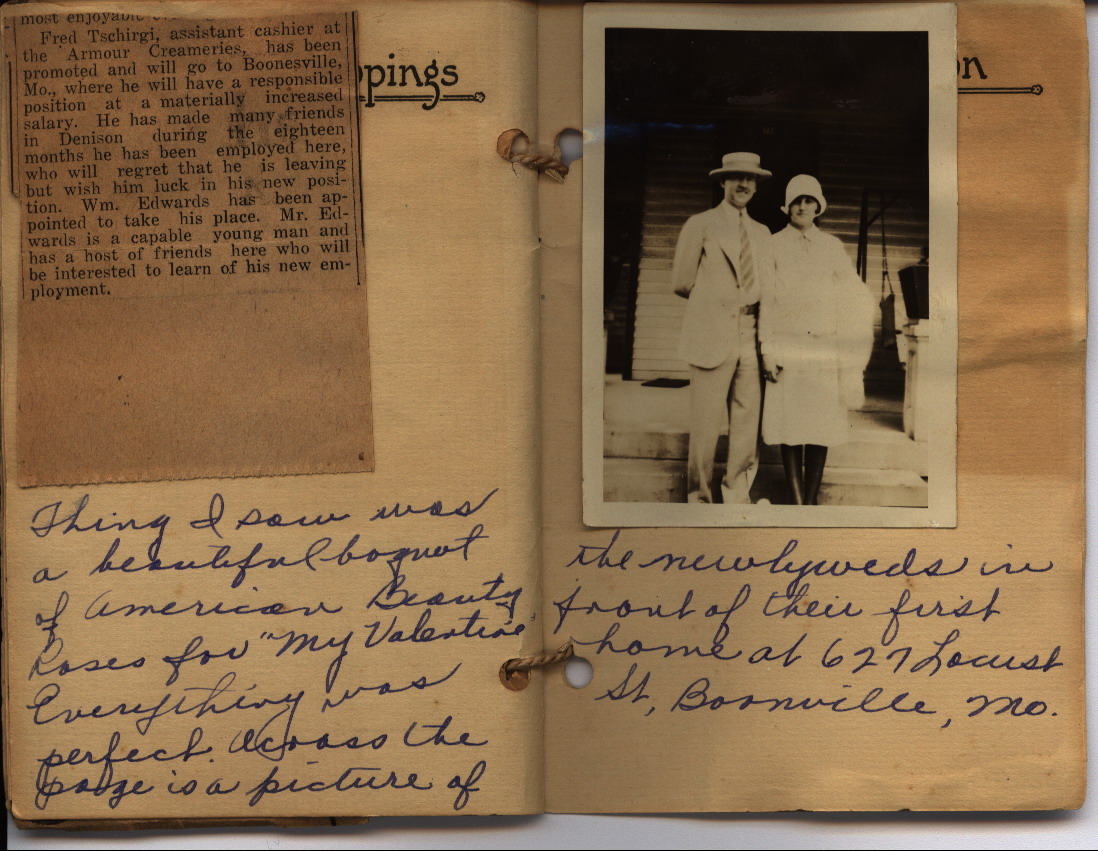 most enjoyable
Fred Tschirgi, assistant cashier at
the Armour Creameries, has been
promoted and will go to Boonesville,
Mo., where he will have a responsible
position at a materially increased
salary. He has made many friends
in Denison during the eighteen
months he has been employed here,
who will regret that he is leaving
but wish him luck in his new posi-
tion. Wm. Edwards has been ap-
pointed to take his place. Mr. Ed-
wards is a capable young man and
has a host of friends here who will
be interested to learn of his new em-
ployment.
ppings
Thing I saw was
a beautiful boquet
of American Beauty
Roses for "My Valentine"
Everything was
perfect. Across the
page is a picture of
on
the newlyweds in
front of their first
home at 627 Locust
St, Boonville, Mo.